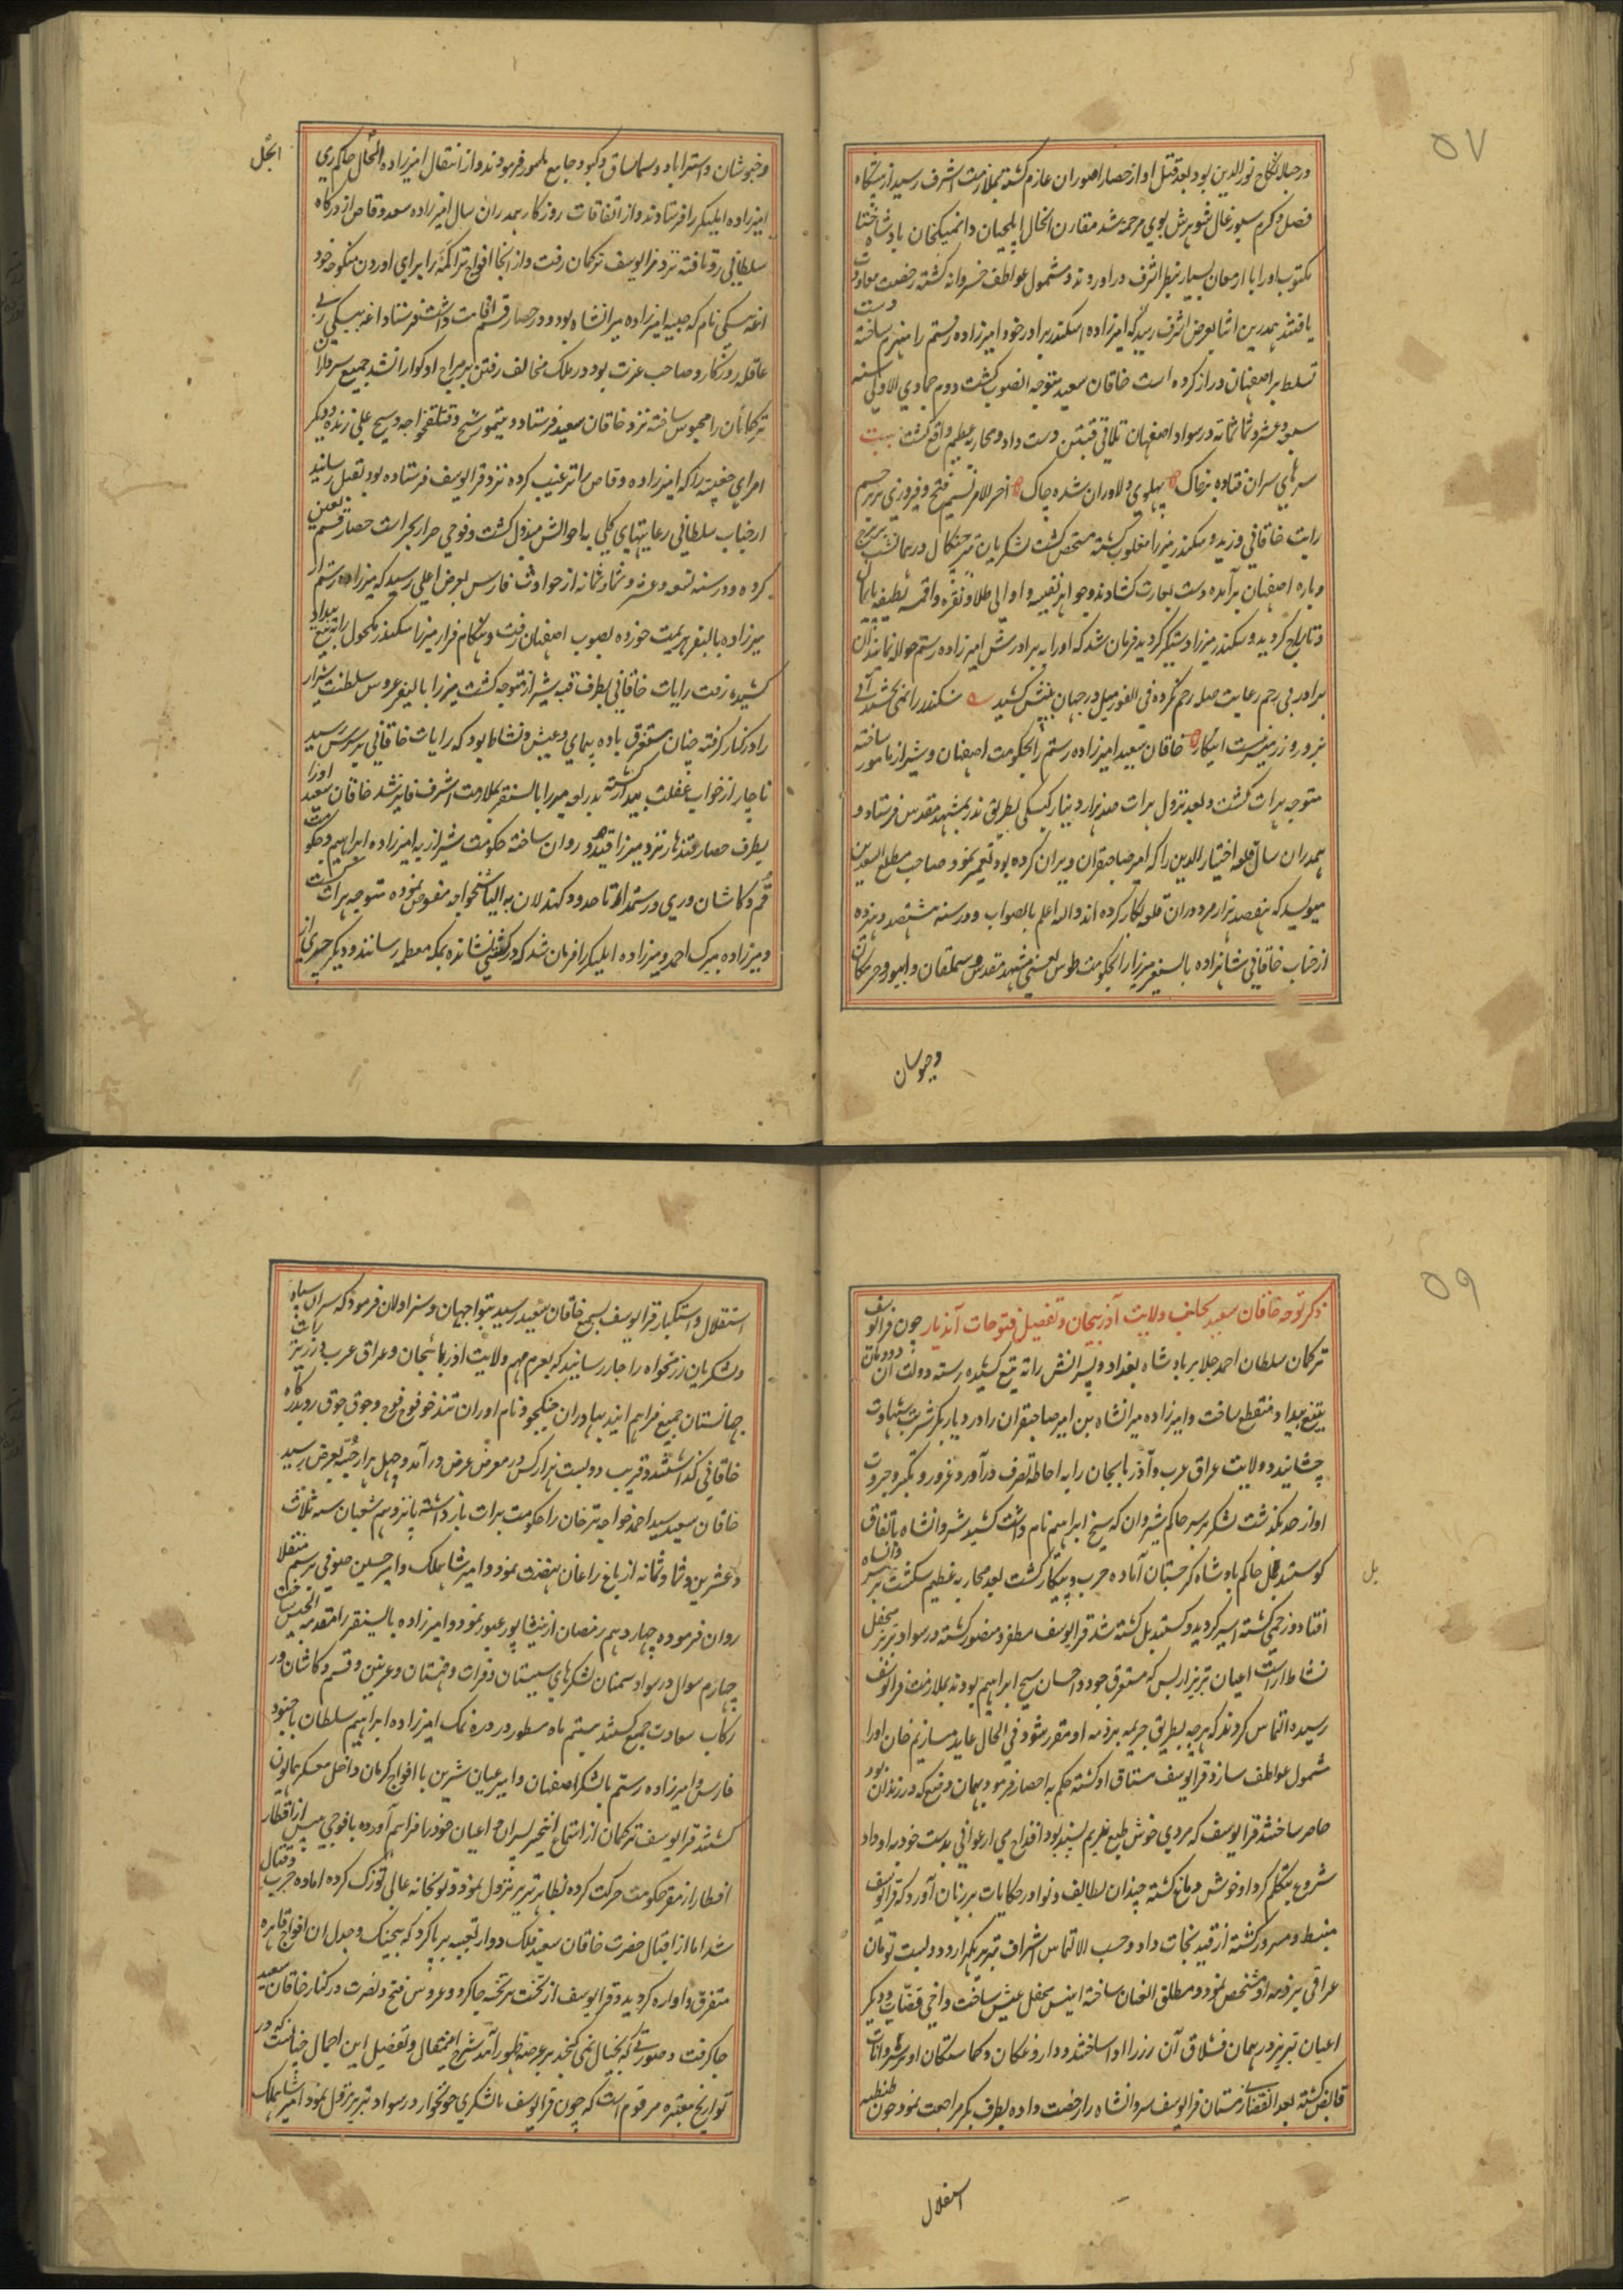 ۵۷
در حباله نکاح نورالدین بود بعد قتل او از حصار اصوران عازم گشته بملازمت اشرف رسید از پیشگاه
فضل و کرم سیورغال شوهرش بوی مرحمة شد مقارن الحال ایلچیان دانمیکخان بادشاه ختا
مکتوب او را با ارمغان بسیار بنظر اشرف در آوردند و مشمول عواطف خسروانه گشته رخصت معاودت
یافتند بهمدرین اثنا بعرض اشرف رسید که امیرزاده اسکندر برادر خود امیرزاده رستم را منهزم ساخته دست
تسلط بر اصفهان دراز کرده است خاقان سعید متوجه انصوب گشت دوم جمادی الاولی سنه
سبع و عشر و ثمانمائه در سواد اصفهان تلاقی فئتین دست داد و محاربه عظیم واقع گشت بیت
سرهای سران فتاده بر خاک پهلوی دلاوران شده چاک آخر الامر نسیم فتح و فیروزی بر پرچم
رایت خاقانی وزید و سکندر میرزا مغلوب گشته متحصن گشت لشکریان تیز چنگال در همانشب ببرج
و باره اصفهان برآمده دست بغارت گشادند و جواهر نفیسه و اوانی طلا و نقره و اقمشه لطیفه پایمال
و تاراج گردید و سکندر میرزا دستگیر گردید فرمان شد که او را به برادرش امیرزاده رستم حواله نمایند آن
برادر بی رحم رعایت صله رحم نکرده فی الفور میل در جهان بینش کشید سکندر را نمی بخشند آبی
بزور و زر میسر نیست اینکار خاقان سعید امیرزاده رستم را بحکومت اصفهان و شیراز مامور ساخته
متوجه هرات گشت و بعد نزول هرات صد هزار دینار کبکی بطریق نذر بمشهد مقدس فرستاد و
بهمدران سال قلعه اختیارالدین را که امیر صاحبقران ویران کرده بود تعمیر نمود صاحب مطلع السعدین
میولسد که هفتصد هزار مرد دوران قلعه کار کرده اند والله اعلم بالصواب و در سنه هشتصد و هژده
از جناب خاقانی شاهزاده بالسنغر میرزا را بحکومت طوس یعنی مشهد مقدس و سملقان و ابیورد و جرمکان
وجبوسان
وخبوشان و استراباد و سماساق و کبود جامع مامور فرمودند و از انتقال امیرزاده انجل حاکم ری
امیرزاده ایلنیکر را فرستادند و از اتفاقات روزگار بهمدران سال امیرزاده سعد وقاص از درگاه
سلطانی رو تافته نزد قرا یوسف ترکمان رفت و از انجا افواج تراکمه را برای اوردن منکوحه خود
اغه بیکی نام که حبیبه امیرزاده میرانشاه بود و در حصار قم اقامت داشت فرستاد اغه بیکی که از
عاقله روزگار و صاحب عزت بود در ملک مخالف رفتن بر مزاج او گوارا نشد جمیع سرداران
ترکمانان را محبوس ساخته نزد خاقان سعید فرستاد و
امرای خفیه را که امیرزاده وقاص را ترغیب کرده نزد قرا یوسف فرستاده بود بقتل رسانید
از جناب سلطانی رعایتهای کلی به احوالش مبذول گشت و فوجی جرار بحراست حصار قم تعین
کرده و در سنه تسعه و عشر و ثمانمائه از حوادث فارس بعرض اعلی رسید که میرزاده رستم از
میرزاده بالنفر هزیمت خورده بصوب اصفهان رفت و هنگام فرار میرزا سکندر مکحول را به تیغ بیداد
کشیده رفت رایات خاقانی بطرف قبه شیراز متوجه گشت میرزا بالنفر عروس سلطنت شیراز
را در کنار گرفته چنان مستغرق باده پیمای و عیش و نشاط بود که رایات خاقانی بر سرش رسید
ناچار از خواب غفلت بیدار گشته بدرامد میرزا بالسنقر بملازمت اشرف فایز شد خاقان سعید او را
بطرف حصار قندهار نزد میرزا قیدو روان ساخته حکومت شیراز به امیرزاده ابراهیم و حکومت
قم و کاشان و ری و رستمدار تا حدود کهندلان به الیاس خواجه مفوض نموده متوجه هرات گشت
و میرزاده بیرک احمد و میرزاده ایلنیکر را فرمان شد که در کشتی نشانده بمکه معظمه رسانند و دیگر چیزی از
انجل
۵۹
ذکر توجه خاقان سعید بجانب ولایت آذربیجان و تفصیل فتوحات آندیار چون قرا یوسف
ترکمان سلطان احمد جلایر بادشاه بغداد و پسرانش را ته تیغ کشیده رسته دولت ان دودمان
بتیغ بیداد منقطع ساخت و امیرزاده میرانشاه بن امیر صاحبقران را در دیار بکر شربت شهادت
چشانیده ولایت عراق عرب و آذربایجان را به احاطه تصرف درآورد و غرور و تکبر و جبروت
او از حد بگذشت لشکر بر سر حاکم شیروان که شیخ ابراهیم نام داشت کشید شروانشاه باتفاق
کوستندیل حاکم بادشاه گرجستان آماده حرب و پیکار گشت بعد محاربه عظیم شکست بر شروانشاه
افتاد و زخمی گشته اسیر گردید و کستندیل کشته شد قرا یوسف مظفر و منصور گشته در سواد تبریز محفل
نشاط آراست اعیان تبریز از بس که مستغرق جود و احسان شیخ ابراهیم بودند بملازمت قرا یوسف
رسیده التماس کردند که هر چه بطریق جریمه بر ذمه او مقرر شود فی الحال عاید مسازیم خان او را
مشمول عواطف سازد قرا یوسف مشتاق او گشته حکم به احضار فرمود بهمان وضع که در زندان بود
حاضر ساختند قرا یوسف که مردی خوش طبع بغزیم پسند بود اقداح می ارغوانی بدست خود به او داد
شروع بتکلم کرد او خوش دماغ گشته چندان لطایف و نوادر حکایات بر زبان آورد که قرا یوسف
منبسط و مسرور گشته از قید نجات داد و حسب الالتماس اشراف تبریز یکهزار و دولیست تومان
عراقی بر ذمه او مشخص نمود و مطلق العنان ساخته انیس محفل عیش ساخت و اخی قصاب و دیگر
اعیان تبریز در همان قشلاق آن زر را ادا ساختند و داروغگان و گماشتگان او بر شروانات
قابض گشته بعد انقضای زمستان قرا یوسف شروانشاه را رخصت داده بطرف بکر مراجعت نمود چون طنطنه
یل
استقلال
استقلال و استکبار قرا یوسف بسمع خاقان سعید رسید بتواجیان و سزاولان فرمود که سران سپاه
و لشکریان زرمخواه را جار رسانید که بعزم مهم ولایت اذربایجان و عراق عرب در زیر رایات
جهانستان جمیع فراهم ایند بهادران جنگجو و نام اوران تندخو فوج فوج و جوق جوق رو بدرگاه
خاقانی گذاشتند و قریب دولیست هزار کس در معرض عرض در آمد و چهل هزار جبه بعرض رسید
خاقان سعید سید احمد خواجه ترخان را حکومت هرات باز داشته پانزدهم شعبان سنه ثلاث
و عشرین و ثمانمائه از باغ زاغان نهضت نمود و امیر شاهملک و امیر حسین صوفی برسم منقلا
روان فرموده چهاردهم رمضان از نیشاپور عبور نمود و امیرزاده بالسنقر را مقدمة الجیش ساخت
چهارم شوال در سواد سمنان لشکرهای سیستان و فرات و خبستان و غزنین و قم و کاشان در
رکاب سعادت جمع گشتند بیستم ماه مسطور در دره نمک امیرزاده ابراهیم سلطان با جنود
فارس و امیرزاده رستم با لشکر اصفهان و امیر عیان شرین با افواج کرمان داخل معسکر همایون
گشتند قرا یوسف ترکمان از استماع اینخبر پسران و اعیان خود را فراهم آورده با فوجی بیش از اقطار
امطار از مقر حکومت حرکت کرده بظاهر تبریز نزول نمود و توپخانه عالی توزک کرده اماده حرب و قتال
شد اما از اقبال حضرت خاقان سعید فلک دوار تعبیه برپا کرد که بیجنگ و جدل ان افواج قاهره
متفرق و اواره گردید و قرا یوسف از تخت بر تخته جا کرد و عروس فتح و نصرت در کنار خاقان سعید
جا گرفت و صورتی که بخیال نمی گنجد بر عرصه ظهور آمد شرح اینمقال و تفصیل این اجمال چنانست که در
تواریخ معتبره مرقوم است که چون قرا یوسف با لشکری خونخوار در سواد تبریز نزول نمود امیر شاهملک